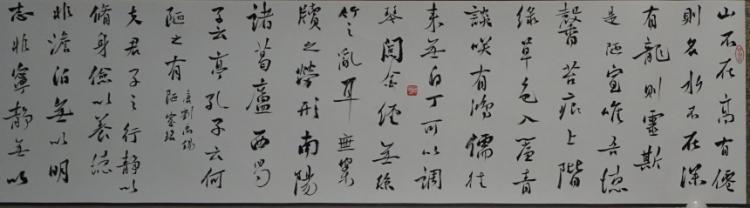 山不在高有僊
则名水不在深
有龍则靈斯
是陋室唯吾德
馨苔痕上階
綠草色入簾青
談咲有鴻儒往
来無白丁可以調
琴閲金經無絲
竹之亂耳無案
牘之勞形南陽
諸葛廬西蜀
子云亭孔子云何
陋之有
录刘禹锡
陋室铭
夫君子之行静以
脩身儉以養德
非澹泊無以明
志非寧静無以